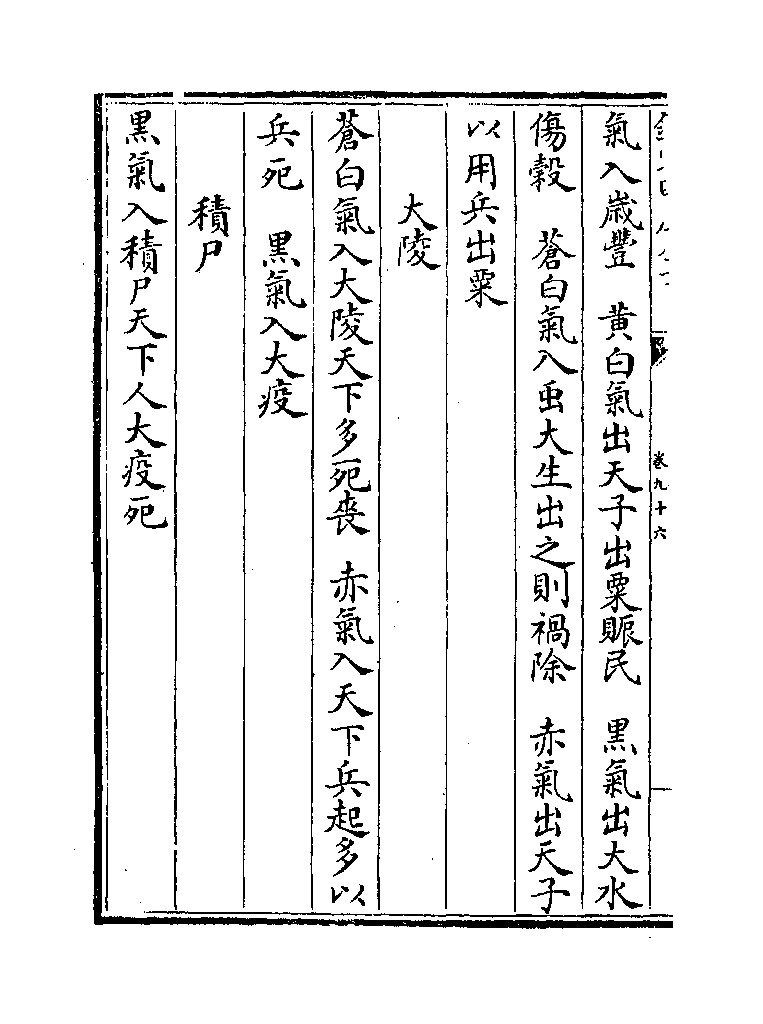 氣入歲豐　黄白氣出天子出粟賑民　黑氣出大水
傷穀　蒼白氣入虫大生出之則禍除　赤氣出天子
以用兵出粟
大陵
蒼白氣入大陵天下多死喪　赤氣入天下兵起多以
兵死　黑氣入大疫
積尸
黑氣入積尸天下人大疫死
卷九十六